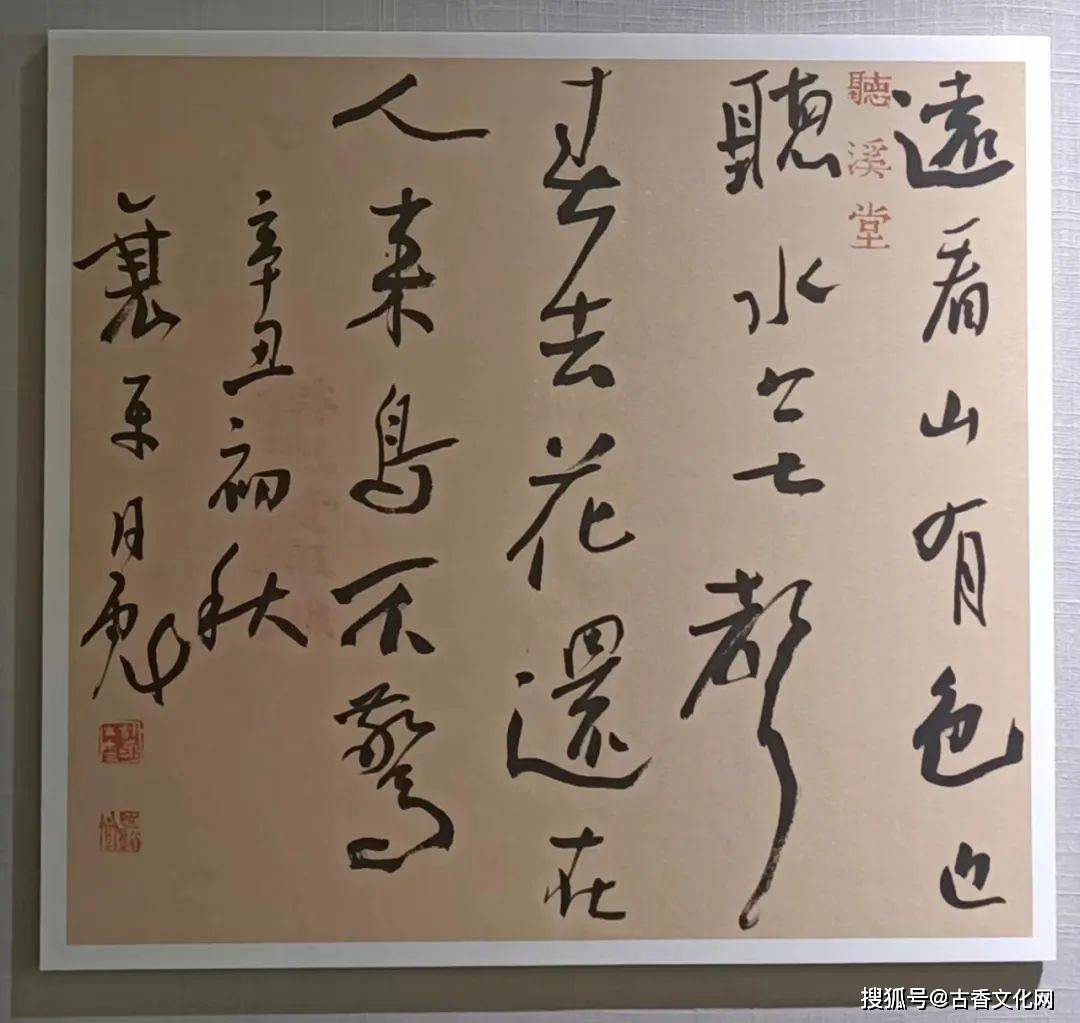 遠看山有色近
聽水無聲
春去花還在
人來鳥不驚
辛丑初秋
聽溪堂
搜狐号@古香文化网